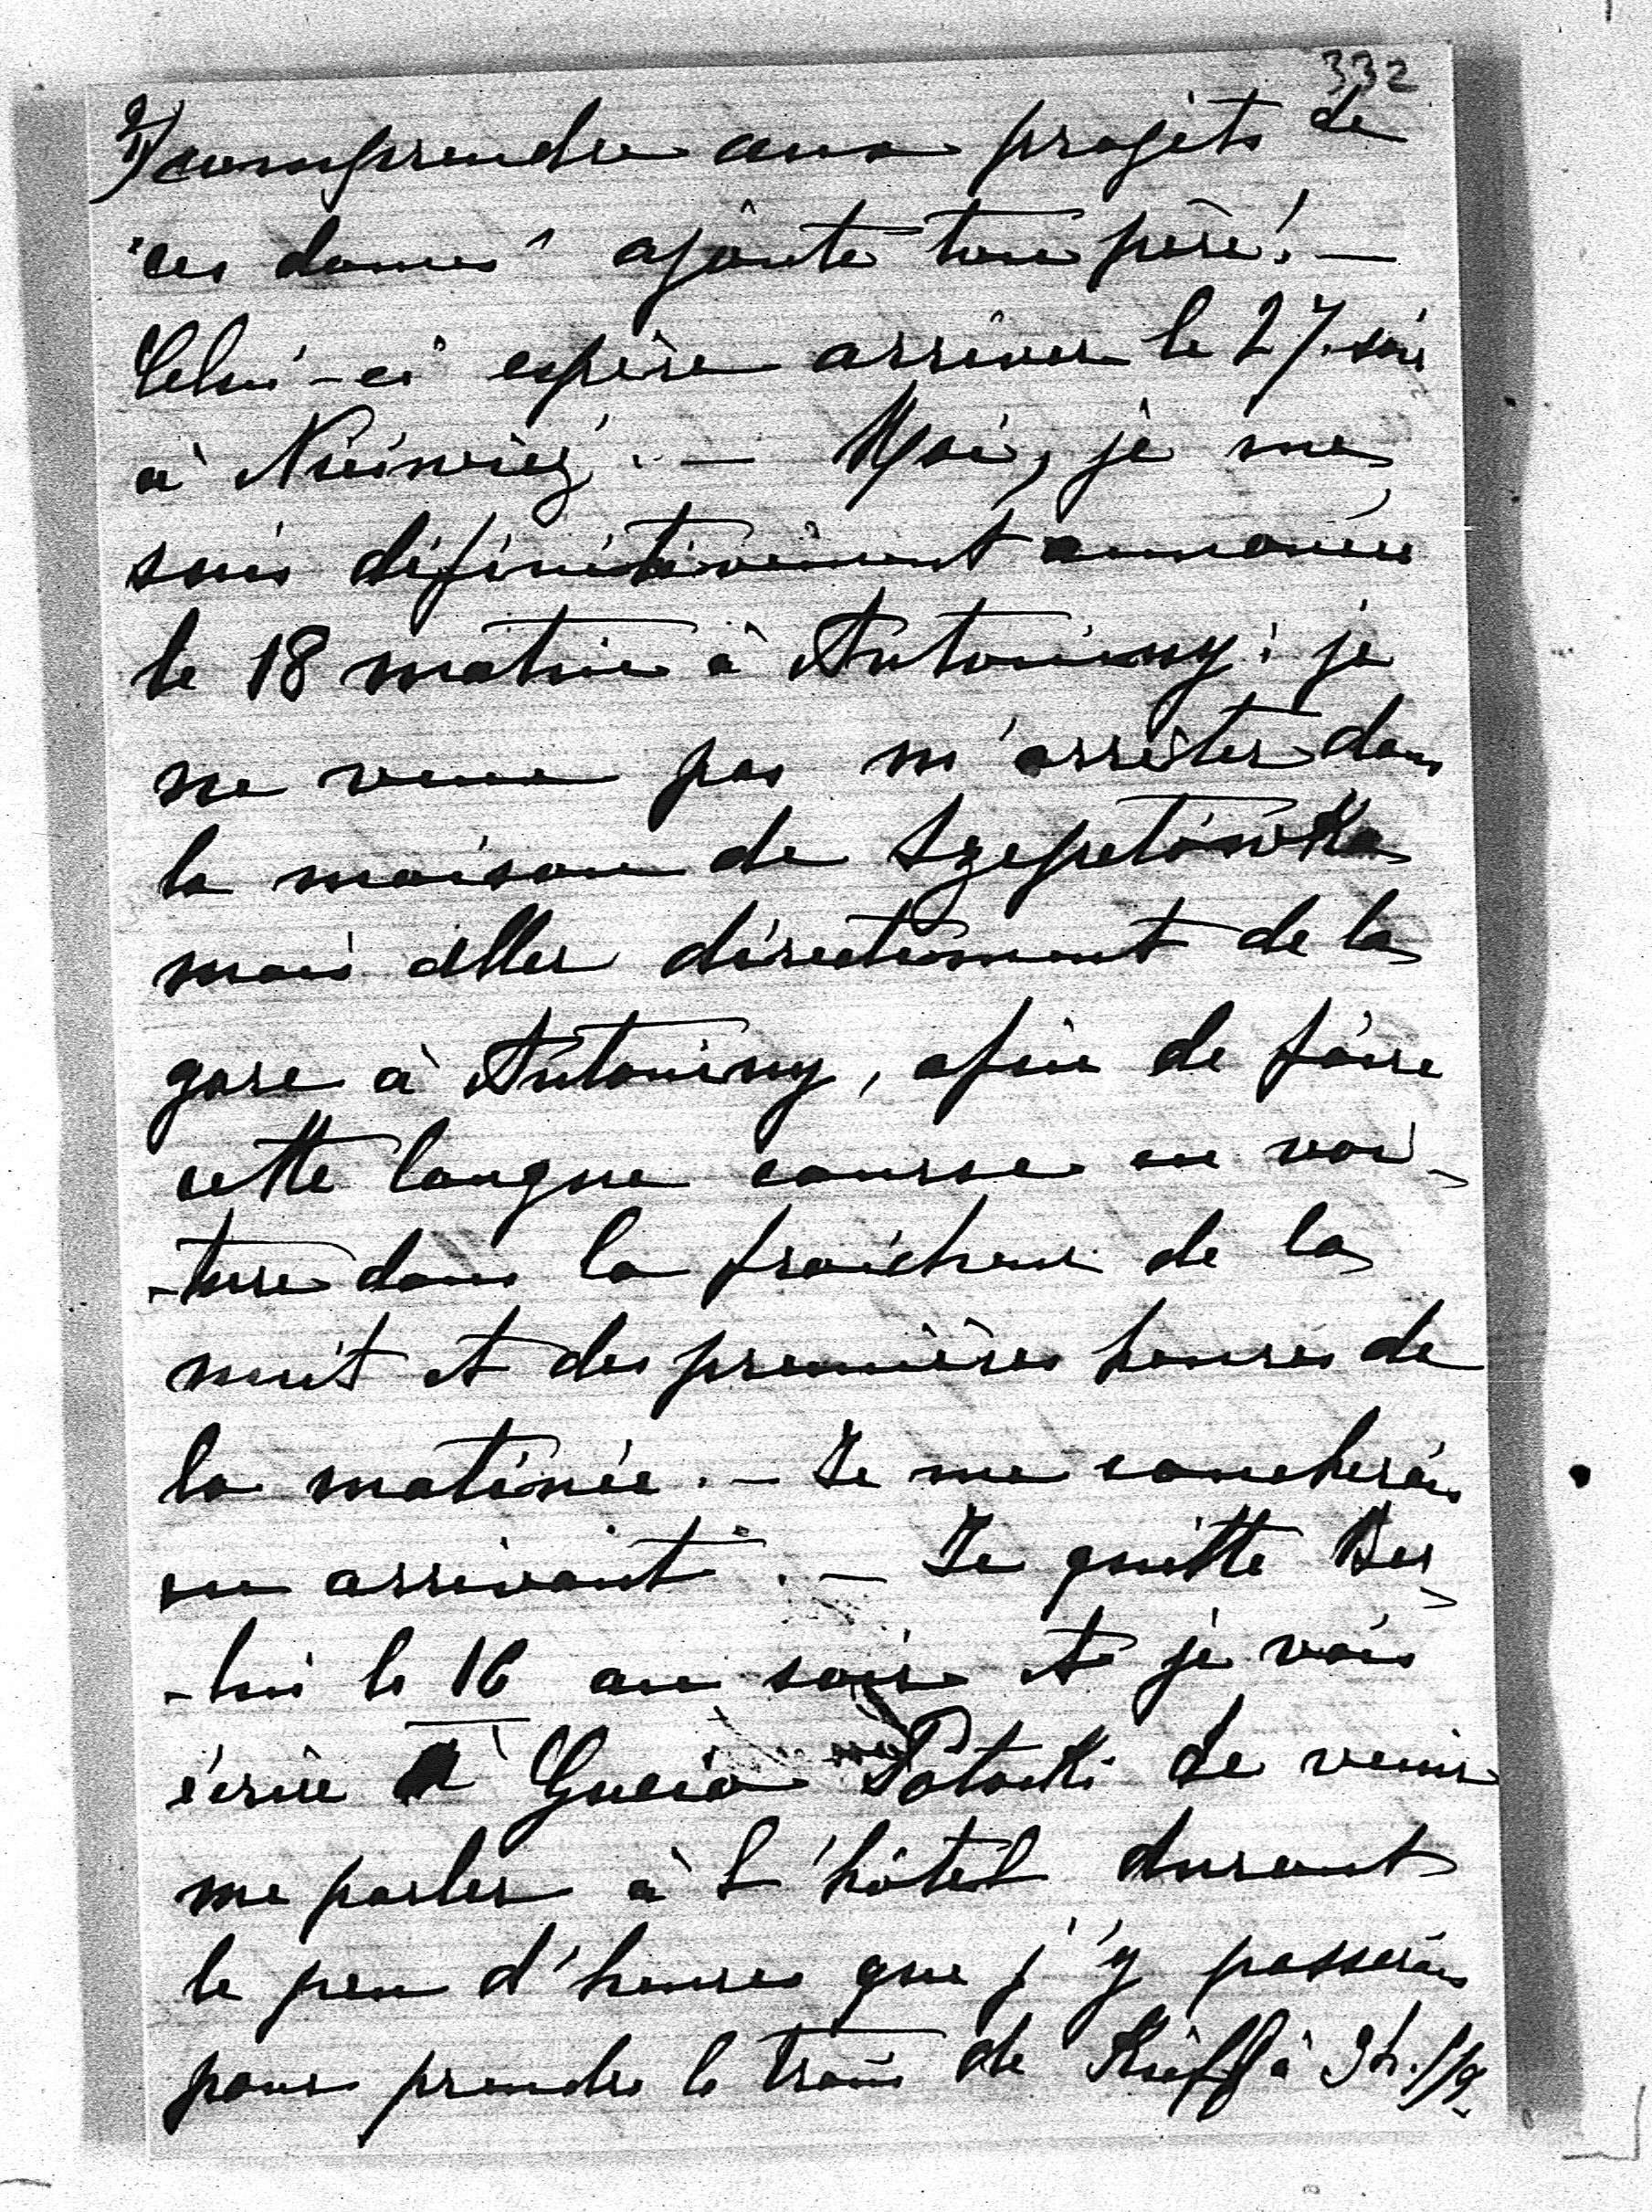 332
2) comprendre aux projets de
"ces dames" ajoute ton père! —
Celui-ci espère arriver le 27 soir
à Nieśwież. — Moi, je me
suis définitivement annoncée
le 18 matin à Antoniny: je
ne veux pas m'arrêter dans
la maison de Szepetówka
mais aller directement de la
gare à Antoniny, afin de faire
cette longue course en voi-
-ture dans la fraîcheur de la
nuit et des premières heures de
la matinée. — Je me coucherai
en arrivant. — Je quitte Ber-
-lin le 16 au soir et je vais
écrire à Gucio Potocki de venir
me parler à l'hôtel durant
le peu d'heures que j'y passerai
pour prendre le train de Kieff à 3h. 1/2